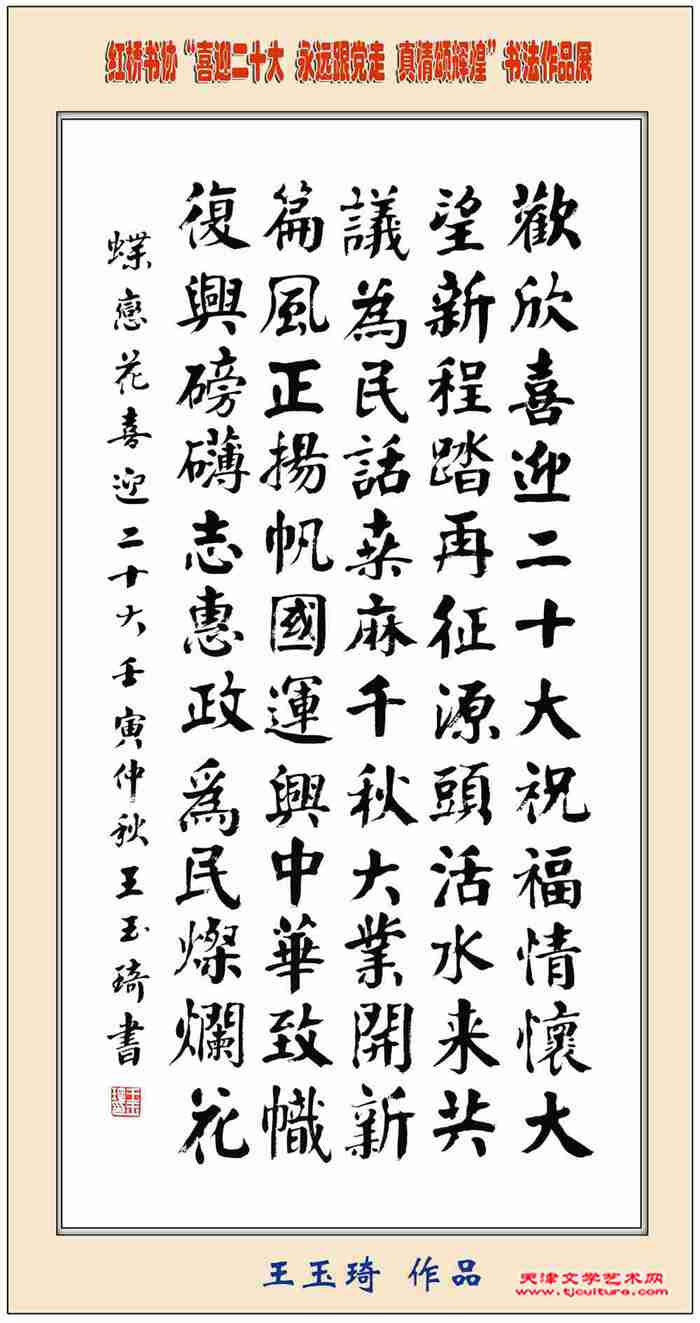 红桥书协“喜迎二十大 永远跟党走 真情颂辉煌”书法作品展
歡欣喜迎二十大祝福情懷大
望新程踏再征源頭活水来共
議為民話桒麻千秋大業開新
篇風正揚帆國運興中華致幟
復興磅礴志惠政爲民燦爛花
蝶戀花喜迎二十大壬寅仲秋王玉琦書
王玉琦 作品
天津文学艺术网
www.tjculture.com